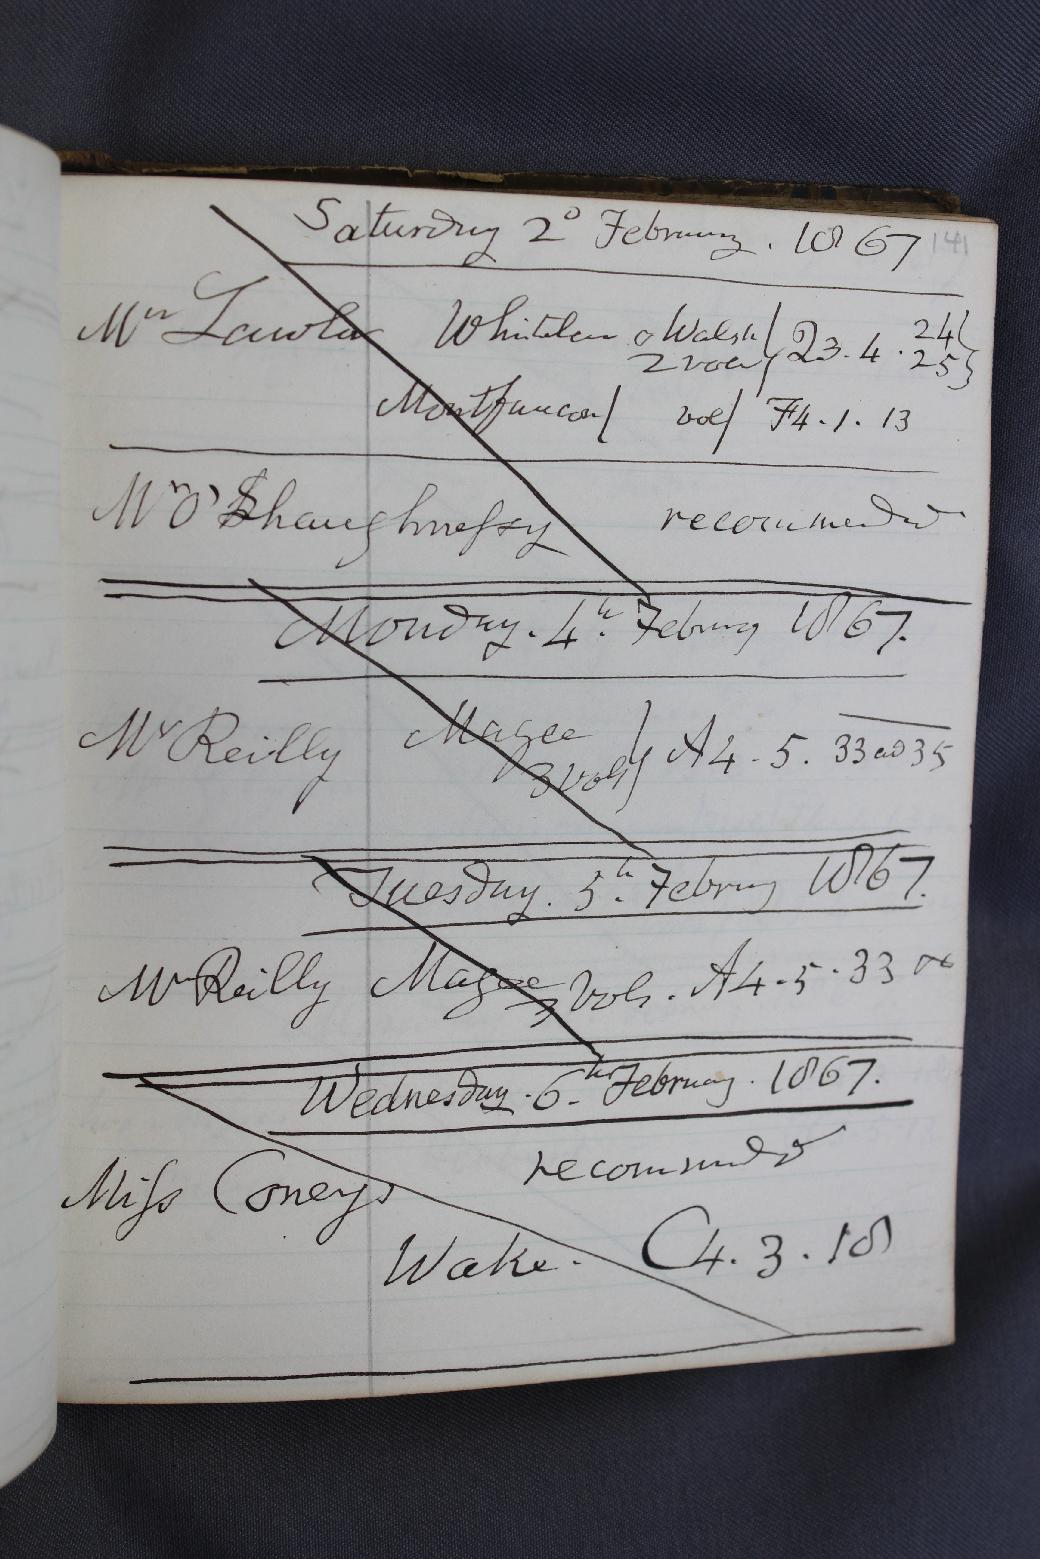 Saturday 2º February. 1867 141
Mr Lawlor Whitelaw & Walsh 23.4.24
2 vols 25
Montfaucon / vol / F4.1.13
Mr O'Shaughnessy recommended
Monday. 4th. February 1867.
Mr Reilly Magee A4.5.33 ad 35
3 vols
Tuesday. 5th. February 1867.
Mr Reilly Magee 3 Vols. A4.5.33 &c
Wednesday. 6th February. 1867.
recommended
Miss Coneys
Wake. C4.3.18